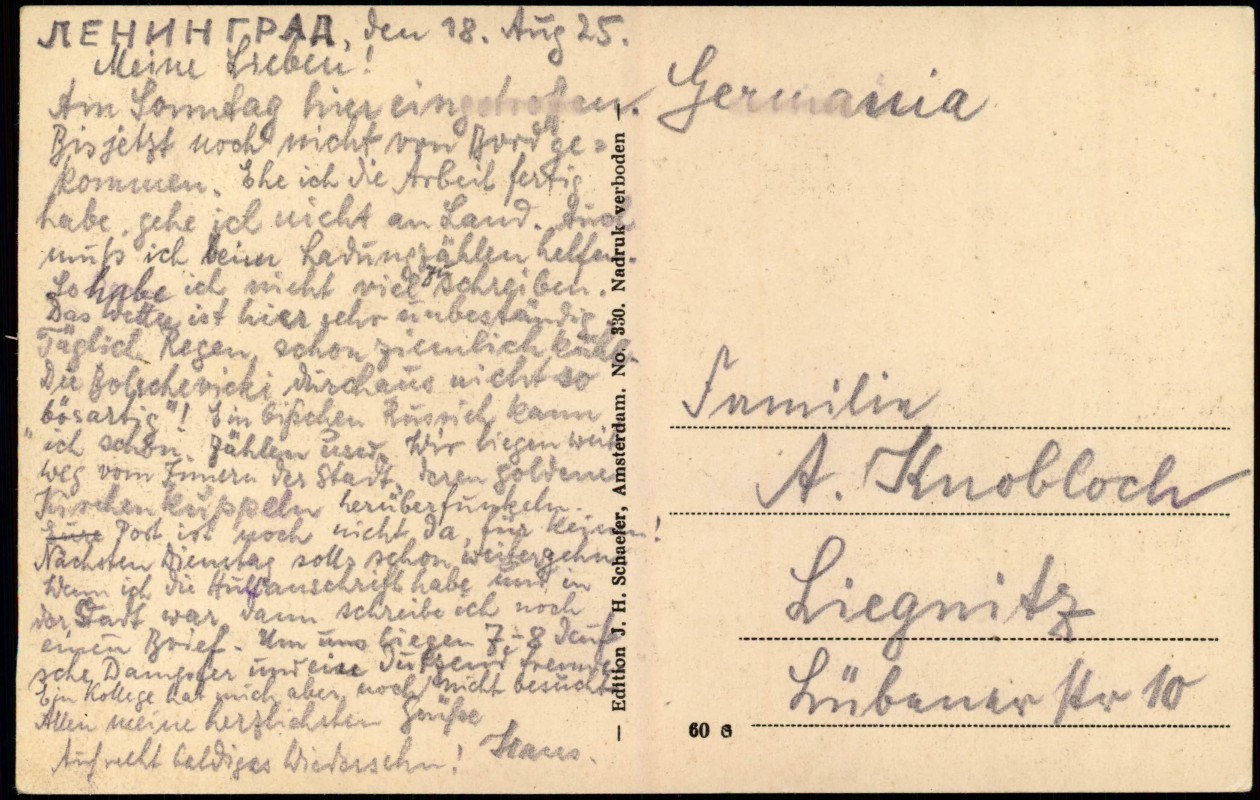 ЛЕНИНГРАД, den 18. Aug 25.
Meine Lieben!
Am Sonntag hier eingetroffen.
Bis jetzt noch nicht von Bord ge=
kommen. Ehe ich die Arbeit fertig
habe, gehe ich nicht an Land. Auch
muß ich beim Ladungzählen helfen.
So habe ich nicht viel zu schreiben.
Das Wetter ist hier sehr unbeständig,
Täglich Regen, schon ziemlich kühl.
Die Bolschevicki durchaus nicht so
„bösartig"! Ein bißchen Russisch kann
ich schon. Zählen usw. Wir liegen weit
weg vom Innern der Stadt, deren goldene
Kirchenkuppeln herüberfunkeln.
Eure Post ist noch nicht da, für keinen!
Nächsten Dienstag solls schon weitergehn.
Wenn ich die habe und in
der Stadt war, dann schreibe ich noch
einen Brief. Um uns liegen 7-8 deut
sche Dampfer und ein Dutzend fremde
Ein Kollege hat mich aber noch nicht besucht
Allen meine herzlichsten Grüße
Auf recht baldiges Wiedersehn! Hans.
— Edition J. H. Schaefer, Amsterdam. No. 330. Nadruk verboden —
Germania
Familie
A. Knobloch
Liegnitz
Lübener Str 10
60 G